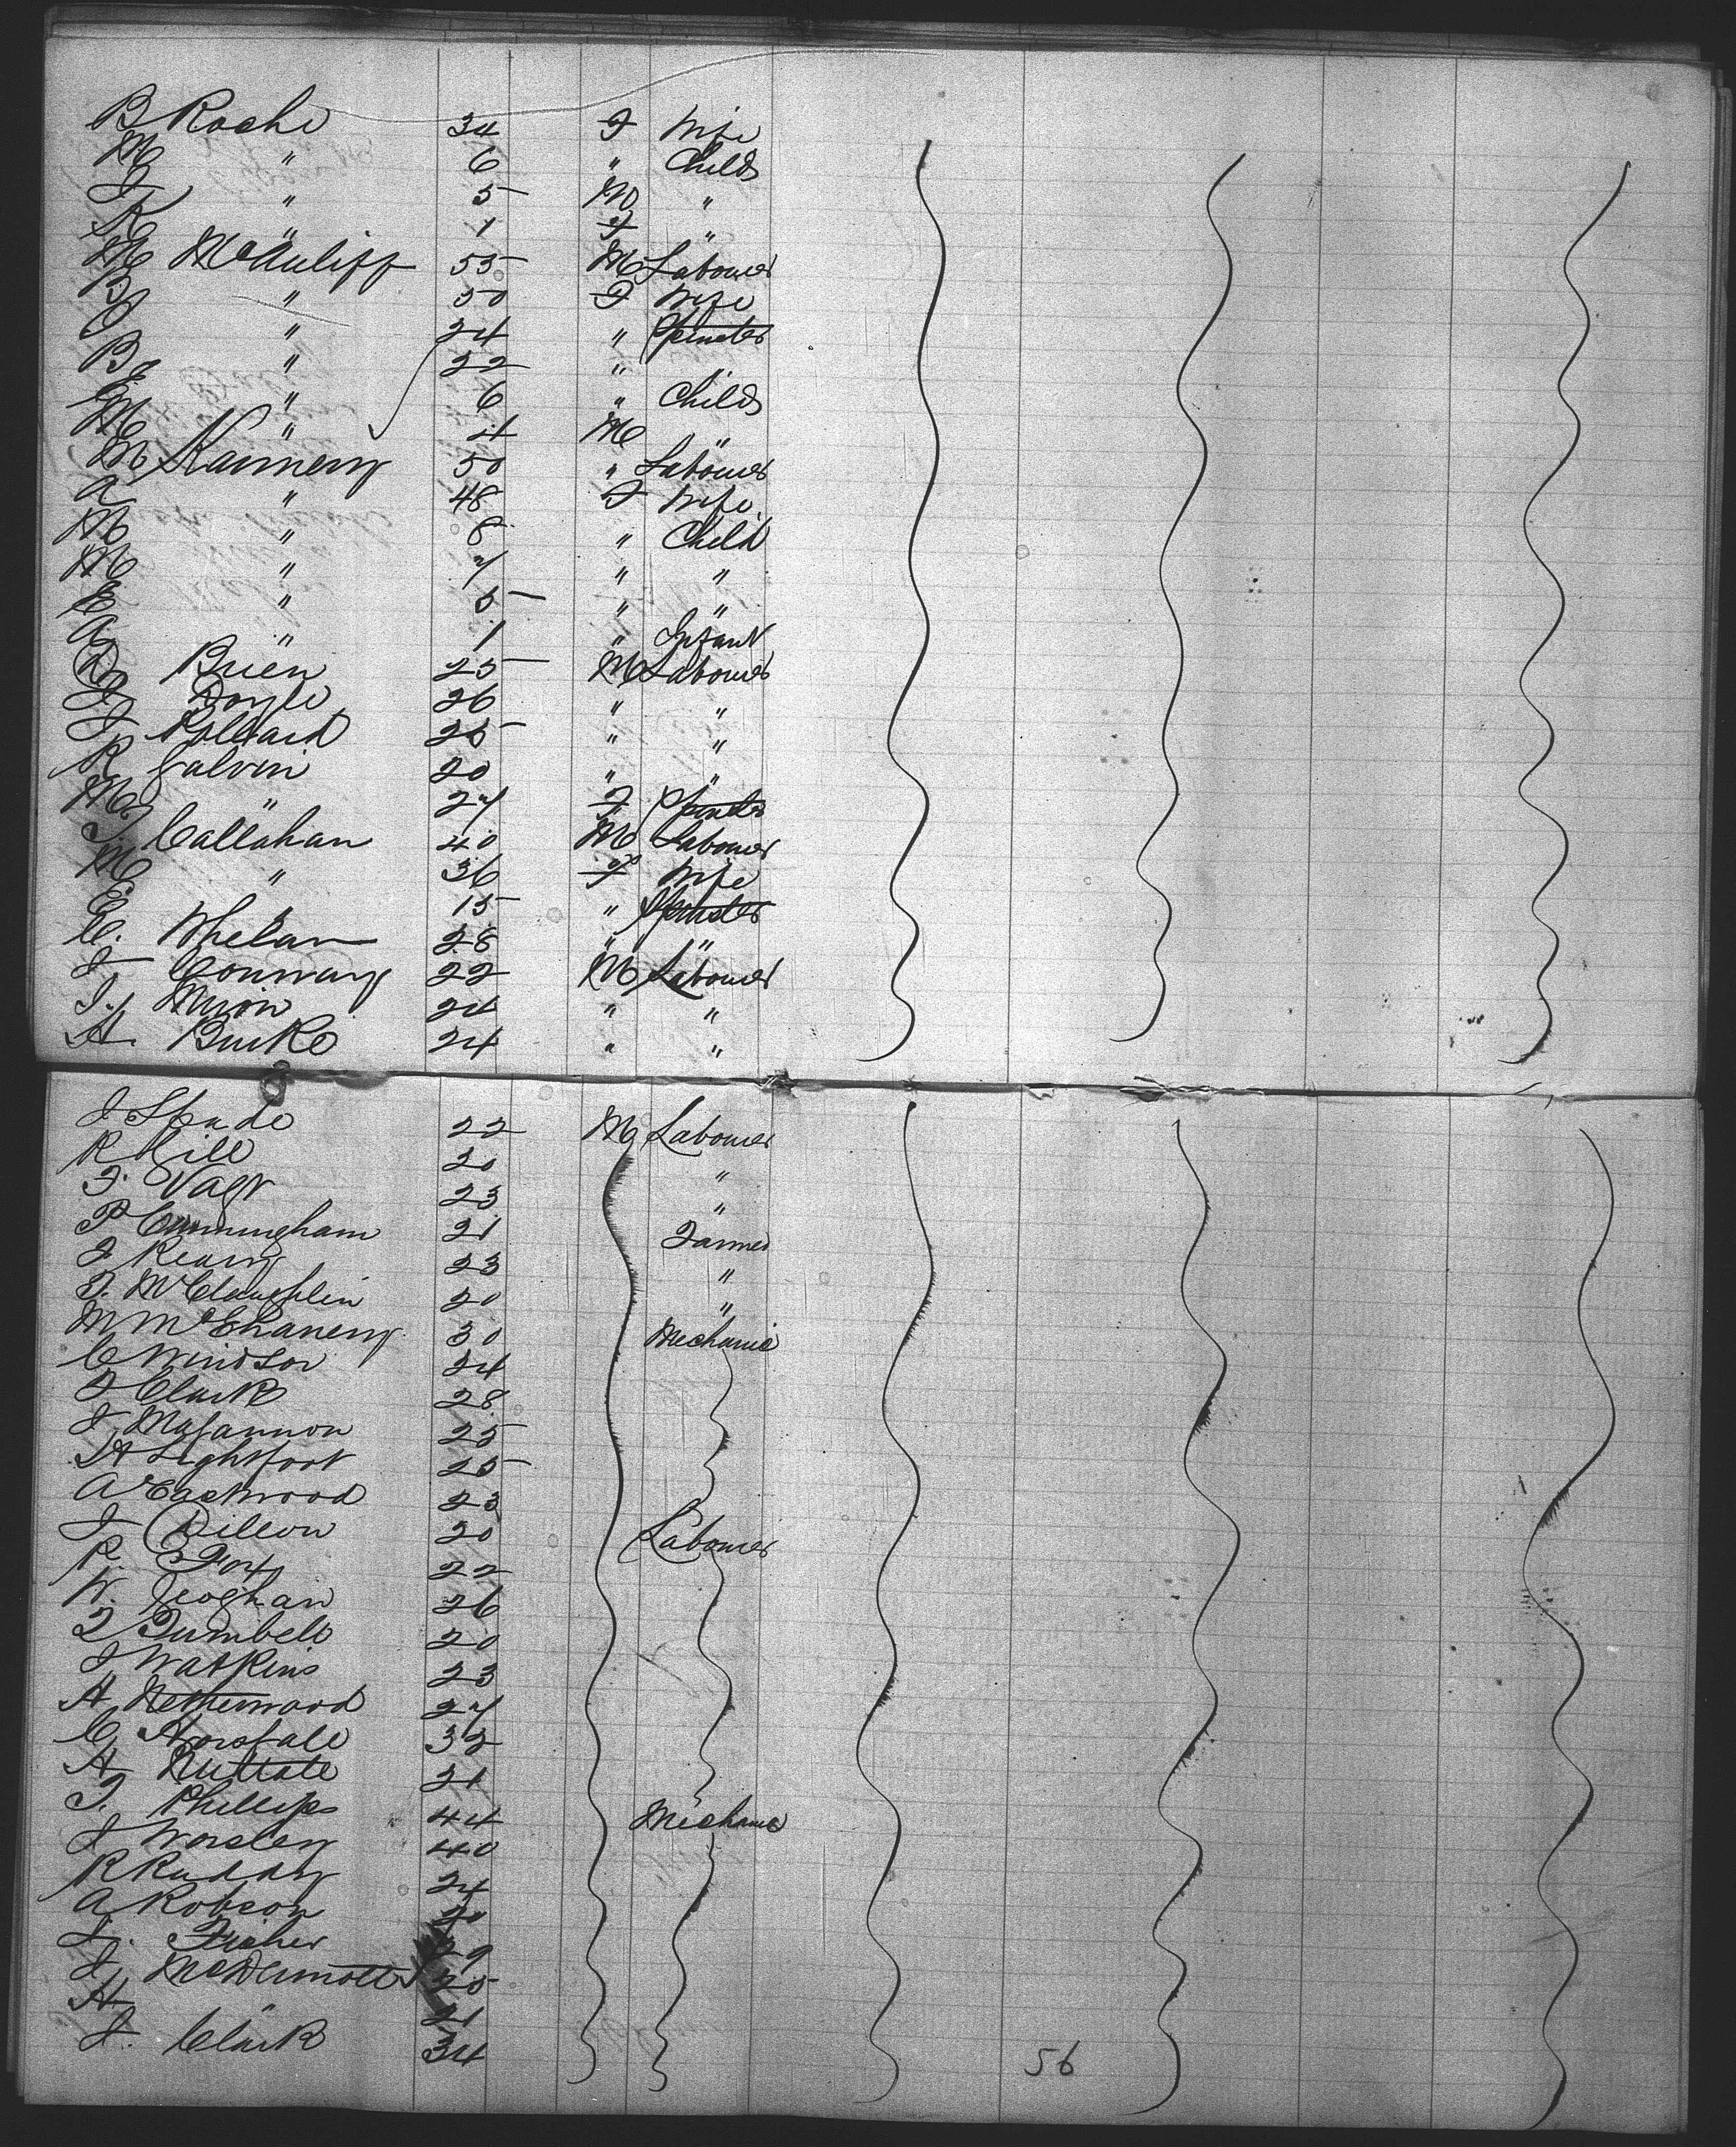 B Roche 34 F Wife
M " 6 " Child
J " 5 M "
K " 1 F "
M McAuliff 55 M Labourer
B " 50 F Wife
J " 24 " Spinster
B " 22 " "
E " 6 " Child
M " 4 M "
M Kannery 50 " Labourer
A " 48 F Wife
M " 8 " Child
M " 7 " "
E " 5 " "
A " 1 " Infant
D Brien 25 M Labourer
J Doyle 26 " "
J 25 " "
K Galvin 20 " "
M " 27 F Spinster
J. Callahan 40 M Labourer
M " 36 F Wife
E " 15 " Spinster
C. Whelan 28 " "
J Conway 22 M Labourer
J. 24 " "
H. Burke 24 " "
J Spade 22 M Labourer
R Gill 20 "
F. Vagt 23 "
P Cunningham 21 Farmer
J Keary 23 "
F. McClaughlin 20 "
M McEhaneny 30 Mechanic
C Windsor 24
J Clark 28
J Magannon 25
H Lightfoot 25
A Eastwood 23
J Dillon 20 Labourer
P. Fox 22
W. Geoghan 26
T Bumbell 20
J Watkins 23
H Netherwood 27
C Horsfall 32
H Nuttall 21
T. Phillips 44 Mechanic
J Worsley 40
R Ruddy 24
A Robson 20
J. Fisher 29
J McDermott 25
H " 21
J. Clark 34
56